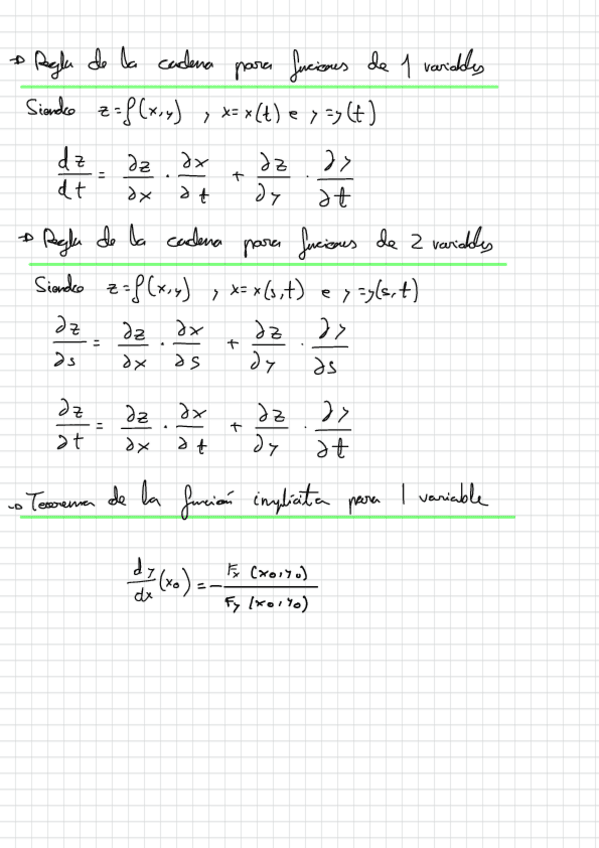 → Regla de la cadena para funciones de 1 variables
Siendo z = f(x,y) , x = x(t) e y = y(t)
dz/dt = ∂z/∂x · ∂x/∂t + ∂z/∂y · ∂y/∂t
→ Regla de la cadena para funciones de 2 variables
Siendo z = f(x,y) , x = x(s,t) e y = y(s,t)
∂z/∂s = ∂z/∂x · ∂x/∂s + ∂z/∂y · ∂y/∂s
∂z/∂t = ∂z/∂x · ∂x/∂t + ∂z/∂y · ∂y/∂t
→ Teorema de la función implícita para 1 variable
dy/dx (x₀) = - Fx (x₀,y₀) / Fy (x₀,y₀)